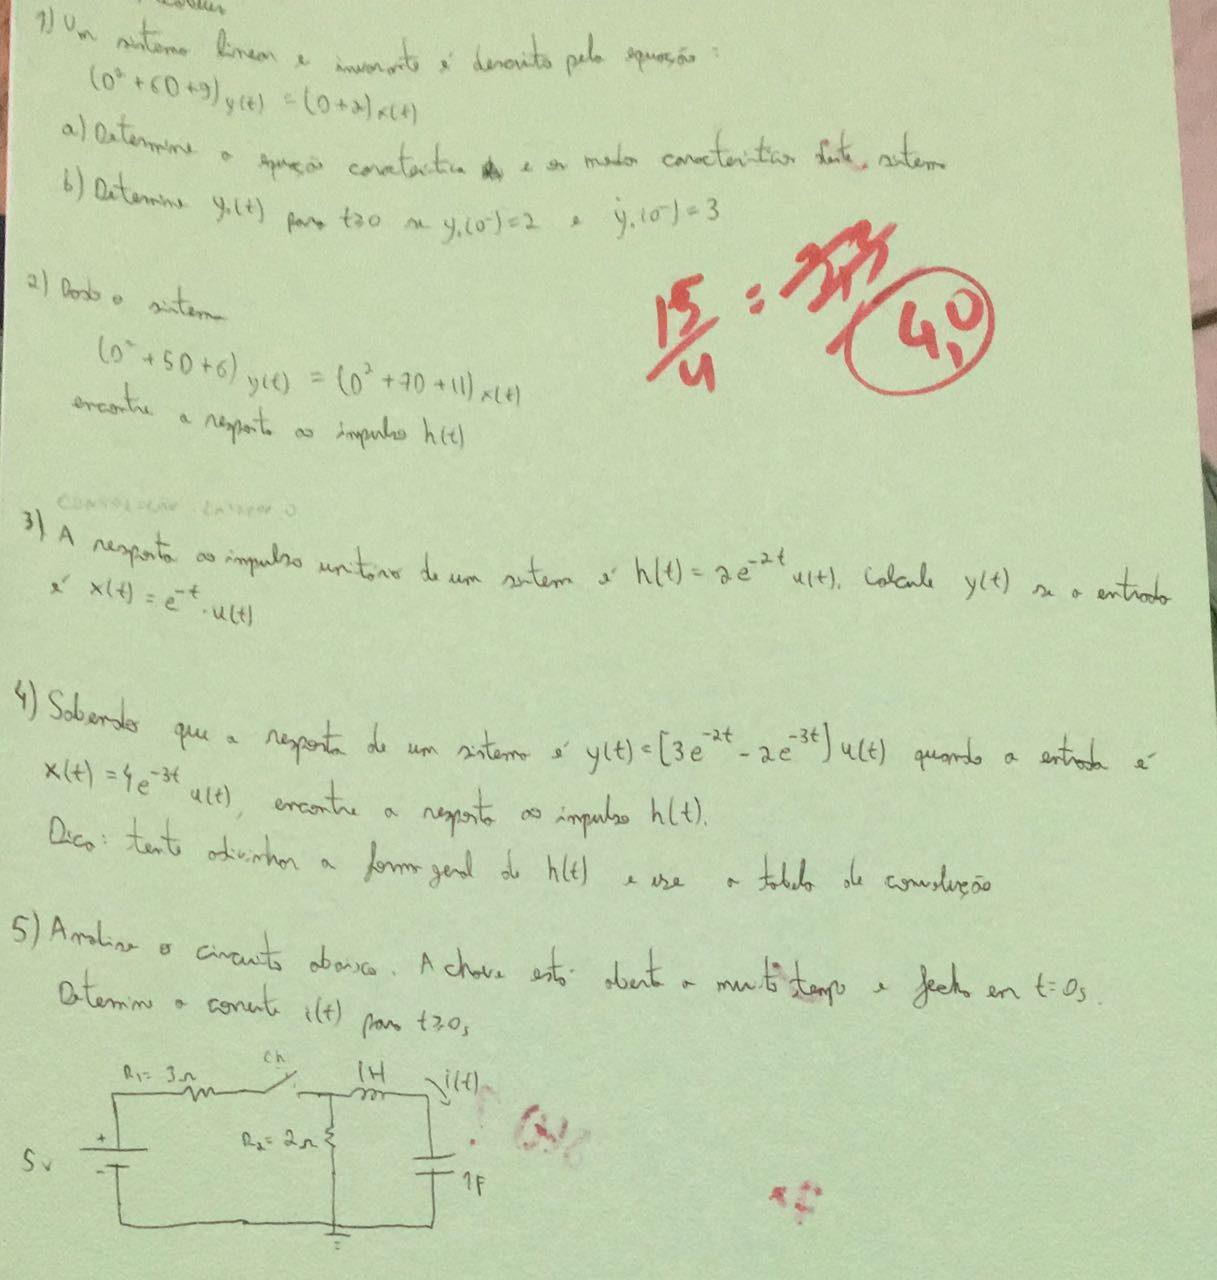 1) Um sistema linear e invariante é descrito pela equação:
(D² + 6D + 9) y(t) = (D + 2) x(t)
a) Determine a equação característica e os modos característicos deste sistema
b) Determine y₀(t) para t≥0 se y₀(0⁻) = 2 e ẏ₀(0⁻) = 3
15/4 =
4,0
2) Dado o sistema
(D² + 5D + 6) y(t) = (D² + 7D + 11) x(t)
encontre a resposta ao impulso h(t)
3) A resposta ao impulso unitário de um sistema é h(t) = 2e^-2t u(t). Calcule y(t) se a entrada
é x(t) = e^-t . u(t)
4) Sabendo que a resposta de um sistema é y(t) = [3e^-2t - 2e^-3t] u(t) quando a entrada é
x(t) = 4e^-3t u(t), encontre a resposta ao impulso h(t).
Dica: tente adivinhar a forma geral de h(t) e use a tabela de convolução
5) Analise o circuito abaixo. A chave está aberta a muito tempo e fecha em t=0s.
Determine a corrente i(t) para t≥0s
R₁= 3Ω
Ch
1H
i(t)
R₂= 2Ω
5v
+
-
1F